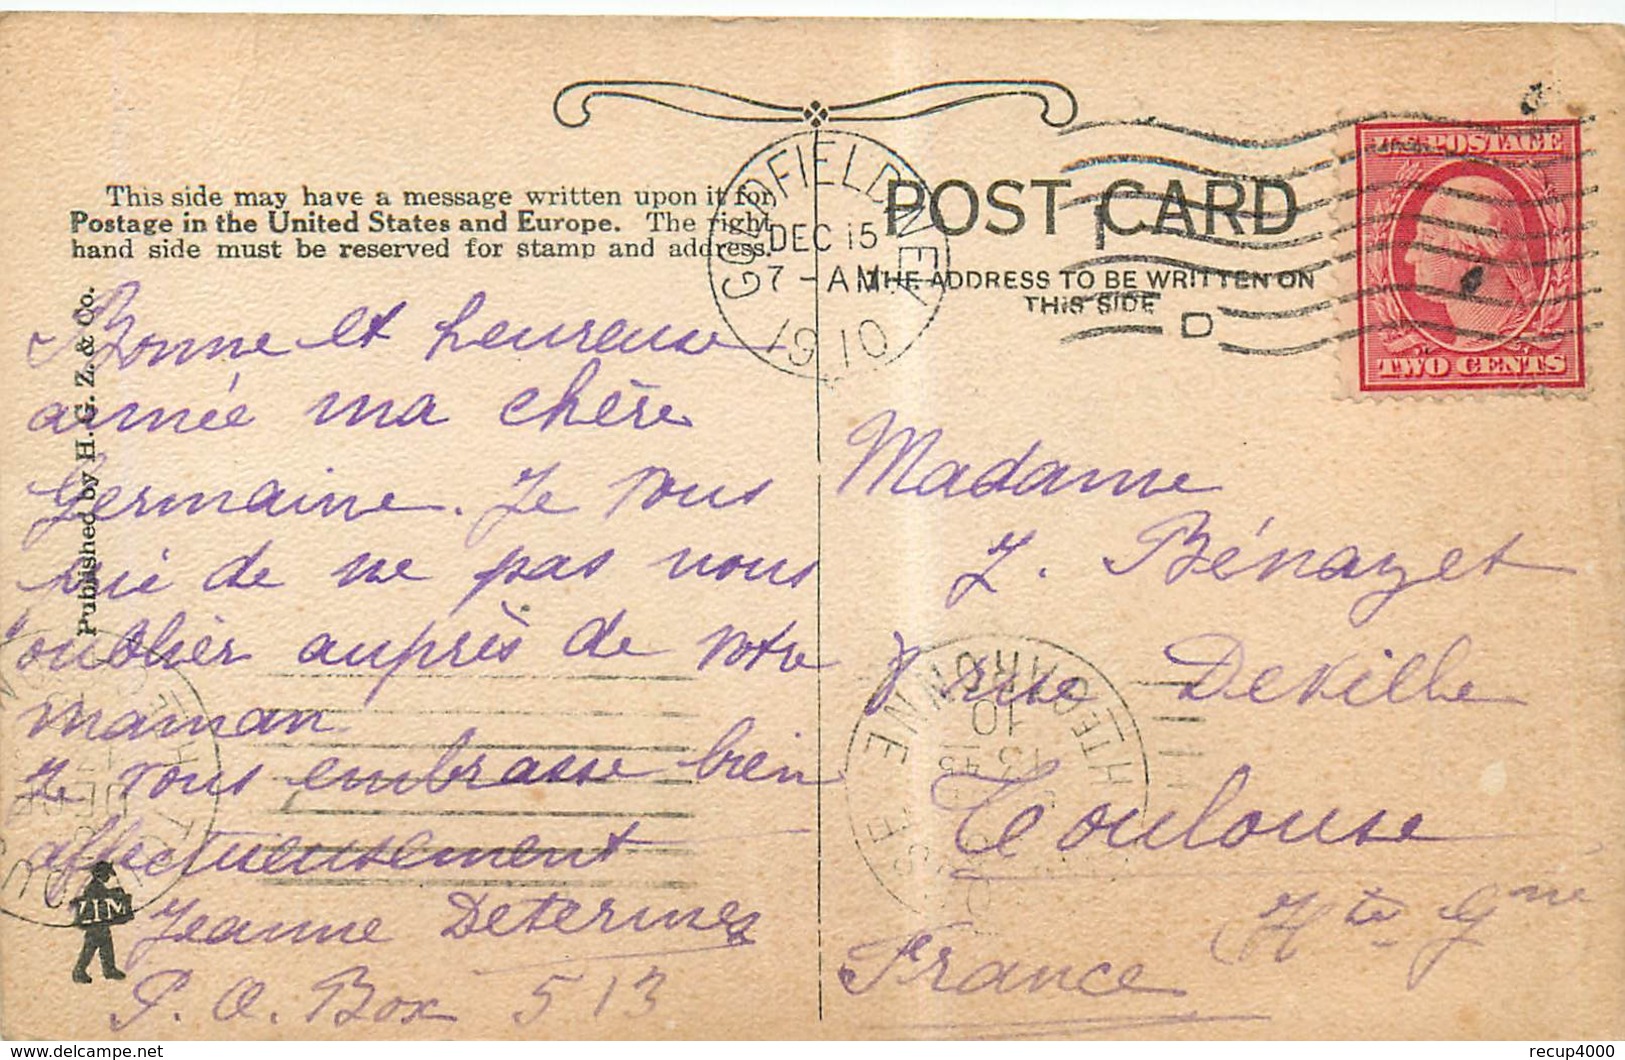 This side may have a message written upon it for
Postage in the United States and Europe. The right
hand side must be reserved for stamp and address.
Published by H. G. Z. & Co.
POST CARD
THE ADDRESS TO BE WRITTEN ON
THIS SIDE
GOLDFIELD NEV.
DEC 15
7 - AM
1910
D
U.S. POSTAGE
TWO CENTS
Bonne et heureuse
année ma chère
Germaine. Je vous
prie de ne pas nous
oublier auprès de votre
maman
Je vous embrasse bien
affectueusement
Jeanne
P. O. Box 513
ZIM
Madame
Bénazet
7 rue Deville
Toulouse
Hte Gne
France
HTE GARONNE
delcampe.net
recup4000